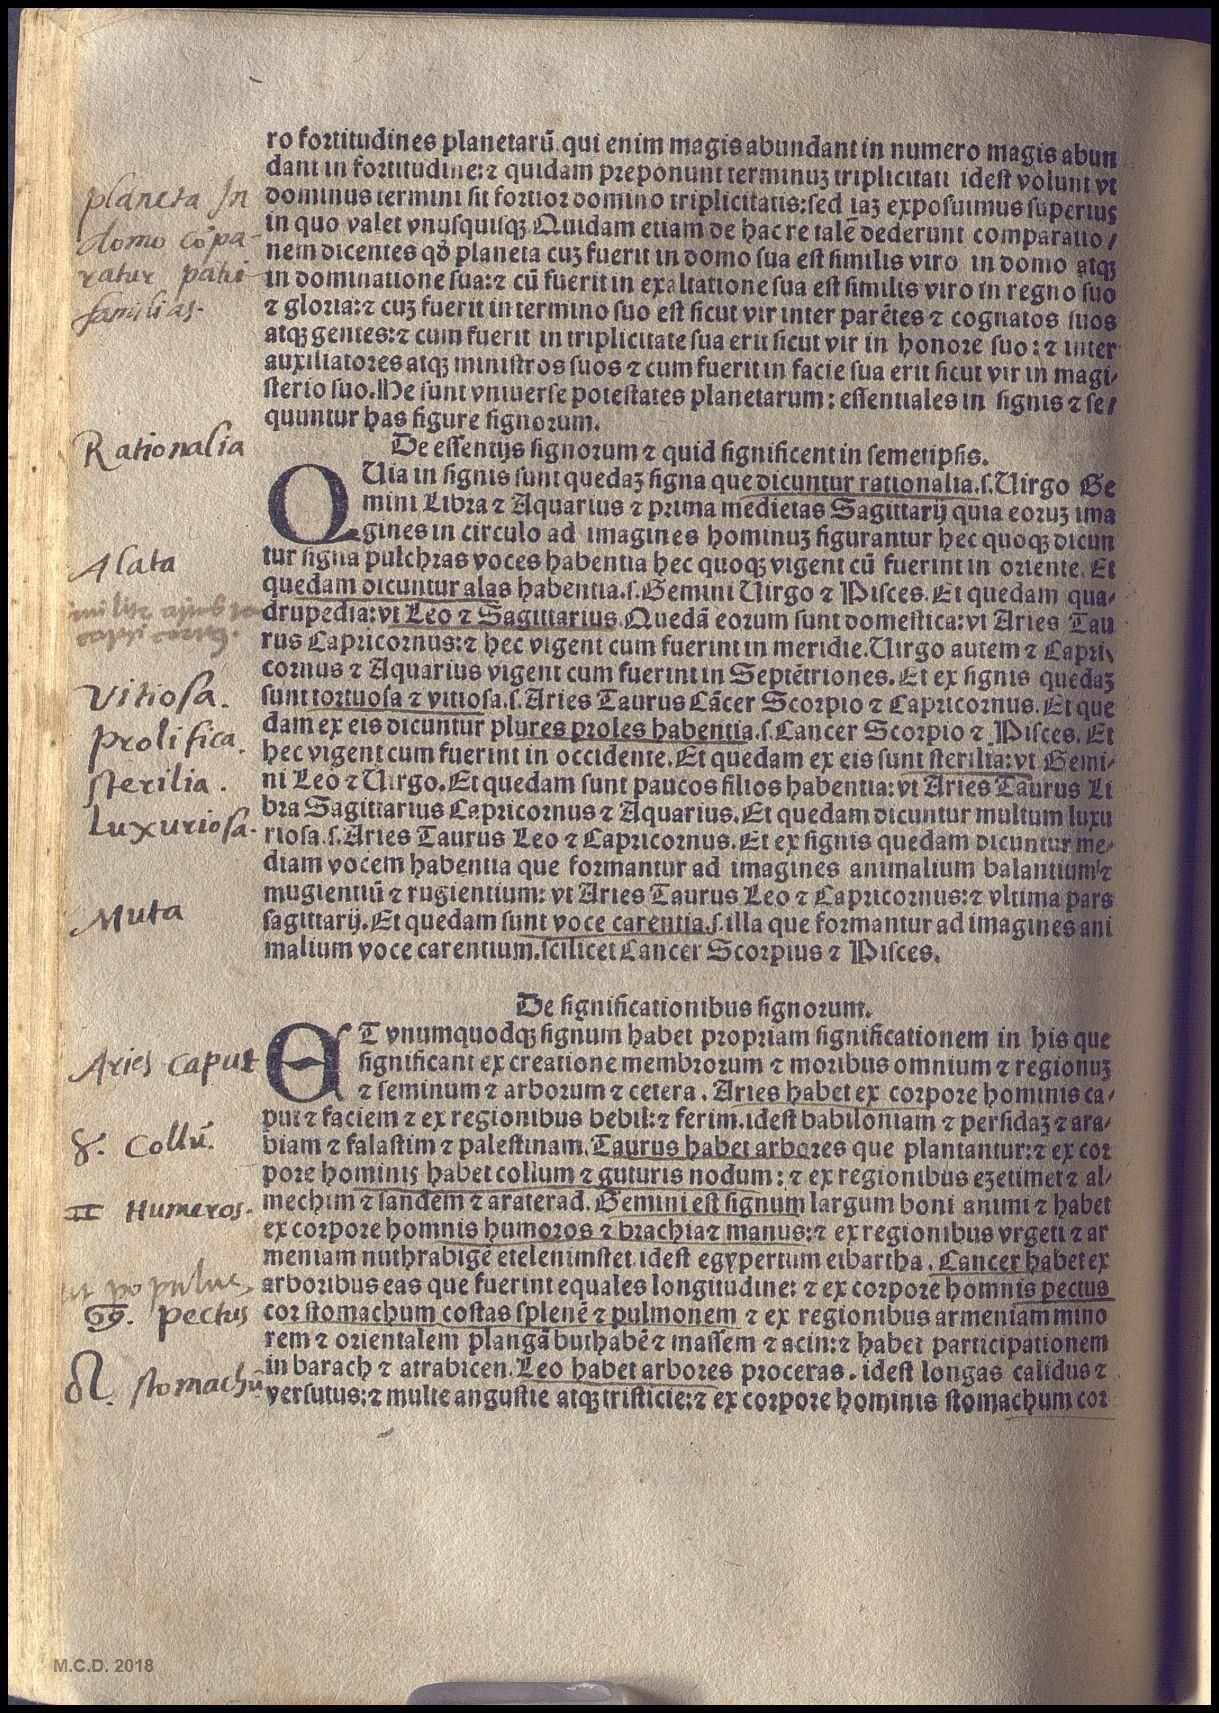 ro fortitudines planetarū qui enim magis abundant in numero magis abun
dant in fortitudine:⁊ quidam preponunt terminuꝫ triplicitati idest volunt vt
dominus termini sit fortior domino triplicitatis:sed iaꝫ exposuimus superius
in quo valet vnusquisqꝫ Quidam etiam de hac re talē dederunt comparatio/
nem dicentes qđ planeta cuꝫ fuerit in domo sua est similis viro in domo atqꝫ
in dominatione sua:⁊ cū fuerit in exaltatione sua est similis viro in regno suo
⁊ gloria:⁊ cuꝫ fuerit in termino suo est sicut vir inter parētes ⁊ cognatos suos
atqꝫ gentes:⁊ cum fuerit in triplicitate sua erit sicut vir in honore suo:⁊ inter
auxiliatores atqꝫ ministros suos ⁊ cum fuerit in facie sua erit sicut vir in magi/
sterio suo.He sunt vniuerse potestates planetarum: essentiales in signis ⁊ se/
quuntur has figure signorum.
planeta In
domo cōpa-
ratur patri
familias.
De essentijs signorum ⁊ quid significent in semetipsis.
QUia in signis sunt quedaꝫ signa que dicuntur rationalia.s.Uirgo Ge
mini Libra ⁊ Aquarius ⁊ prima medietas Sagittarij quia eoruꝫ ima
gines in circulo ad imagines hominuꝫ figurantur hec quoqꝫ dicun
tur signa pulchras voces habentia hec quoqꝫ vigent cū fuerint in oriente. Et
quedam dicuntur alas habentia.s.Gemini Uirgo ⁊ Pisces.Et quedam qua/
drupedia:vt Leo ⁊ Sagittarius.Quedā eorum sunt domestica:vt Aries Tau
rus Capricornus:⁊ hec vigent cum fuerint in meridie.Uirgo autem ⁊ Capri/
cornus ⁊ Aquarius vigent cum fuerint in Septētriones.Et ex signis quedaꝫ
sunt tortuosa ⁊ vitiosa.s.Aries Taurus Cācer Scorpio ⁊ Capricornus.Et que
dam ex eis dicuntur plures proles habentia.s.Cancer Scorpio ⁊ Pisces.Et
hec vigent cum fuerint in occidente.Et quedam ex eis sunt sterilia:vt Gemi/
ni Leo ⁊ Uirgo.Et quedam sunt paucos filios habentia:vt Aries Taurus Li
bra Sagittarius Capricornus ⁊ Aquarius.Et quedam dicuntur multum luxu
riosa.s.Aries Taurus Leo ⁊ Capricornus.Et ex signis quedam dicuntur me/
diam vocem habentia que formantur ad imagines animalium balantium ⁊
mugientiū ⁊ rugientium: vt Aries Taurus Leo ⁊ Capricornus:⁊ vltima pars
sagittarij.Et quedam sunt voce carentia.s.illa que formantur ad imagines ani
malium voce carentium.scilicet Cancer Scorpius ⁊ Pisces.
Rationalia
Alata
Vitiosa.
Prolifica.
sterilia.
Luxuriosa.
Muta
De significationibus signorum.
ET vnumquodqꝫ signum habet propriam significationem in his que
significant ex creatione membrorum ⁊ moribus omnium ⁊ regionuꝫ
⁊ seminum ⁊ arborum ⁊ cetera. Aries habet ex corpore hominis ca/
put ⁊ faciem ⁊ ex regionibus bebil:⁊ ferim.idest babiloniam ⁊ persidaꝫ ⁊ ara/
biam ⁊ falastim ⁊ palestinam.Taurus habet arbores que plantantur:⁊ ex cor
pore hominis habet collum ⁊ guturis nodum: ⁊ ex regionibus eꝫetimet ⁊ al/
mechim ⁊ sandem ⁊ araterad. Gemini est signum largum boni animi ⁊ habet
ex corpore homnis humoros ⁊ brachia⁊ manus:⁊ ex regionibus vrgeti ⁊ ar
meniam nuthrabige etelenimstet.idest egypertum eibartha. Cancer habet ex
arboribus eas que fuerint equales longitudine: ⁊ ex corpore homnis pectus
cor stomachum costas splenē ⁊ pulmonem ⁊ ex regionibus armeniam mino
rem ⁊ orientalem plangā buthabē ⁊ massem ⁊ acin:⁊ habet participationem
in barach ⁊ atrabicen.Leo habet arbores proceras. idest longas calidus ⁊
versutus:⁊ multe angustie atqꝫ tristicie:⁊ ex corpore hominis stomachum cor
Aries caput
♉. Collū.
♊ Humeros.
ut populus
♋. pectus
♌. stomachū
M.C.D. 2018